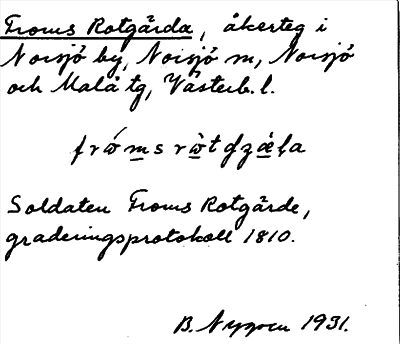 Froms Rotgärda, åkerteg i
Norsjö by, Norsjö sn, Norsjö
och Malå tg, Västerb. l.
Soldaten Froms Rotgärde,
graderingsprotokoll 1810.
B. Nygren 1931.